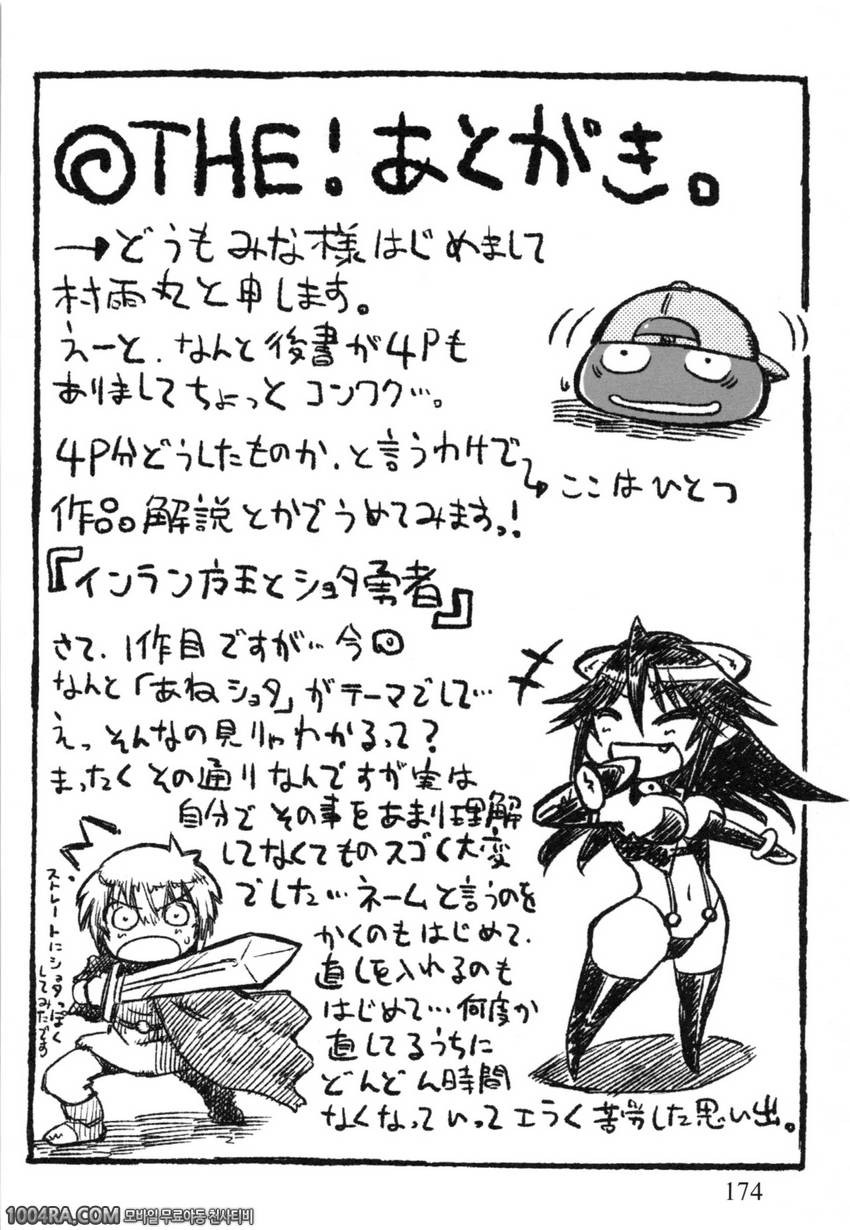 @THE！あとがき。
→どうもみな様はじめまして
村雨丸と申します。
えーと、なんと後書が4Pも
ありましてちょっとコンワク…。
4P分どうしたものか、と言うわけで
→ここはひとつ
作品解説とかでうめてみますっ！
『インラン方王とショタ勇者』
さて、1作目ですが…今回
なんと「あねショタ」がテーマでして…
えっそんなの見りゃわかるって？
まったくその通りなんですが実は
自分でその事をあまり理解
してなくてものスゴく大変
でした…ネームと言うのを
かくのもはじめて、
直しを入れるのも
はじめて…何度か
直してるうちに
どんどん時間
なくなっていってエラく苦労した思い出。
ストレートにショタっぽく
してみたです
174
1004RA.COM 모바일 무료야동 천사티비